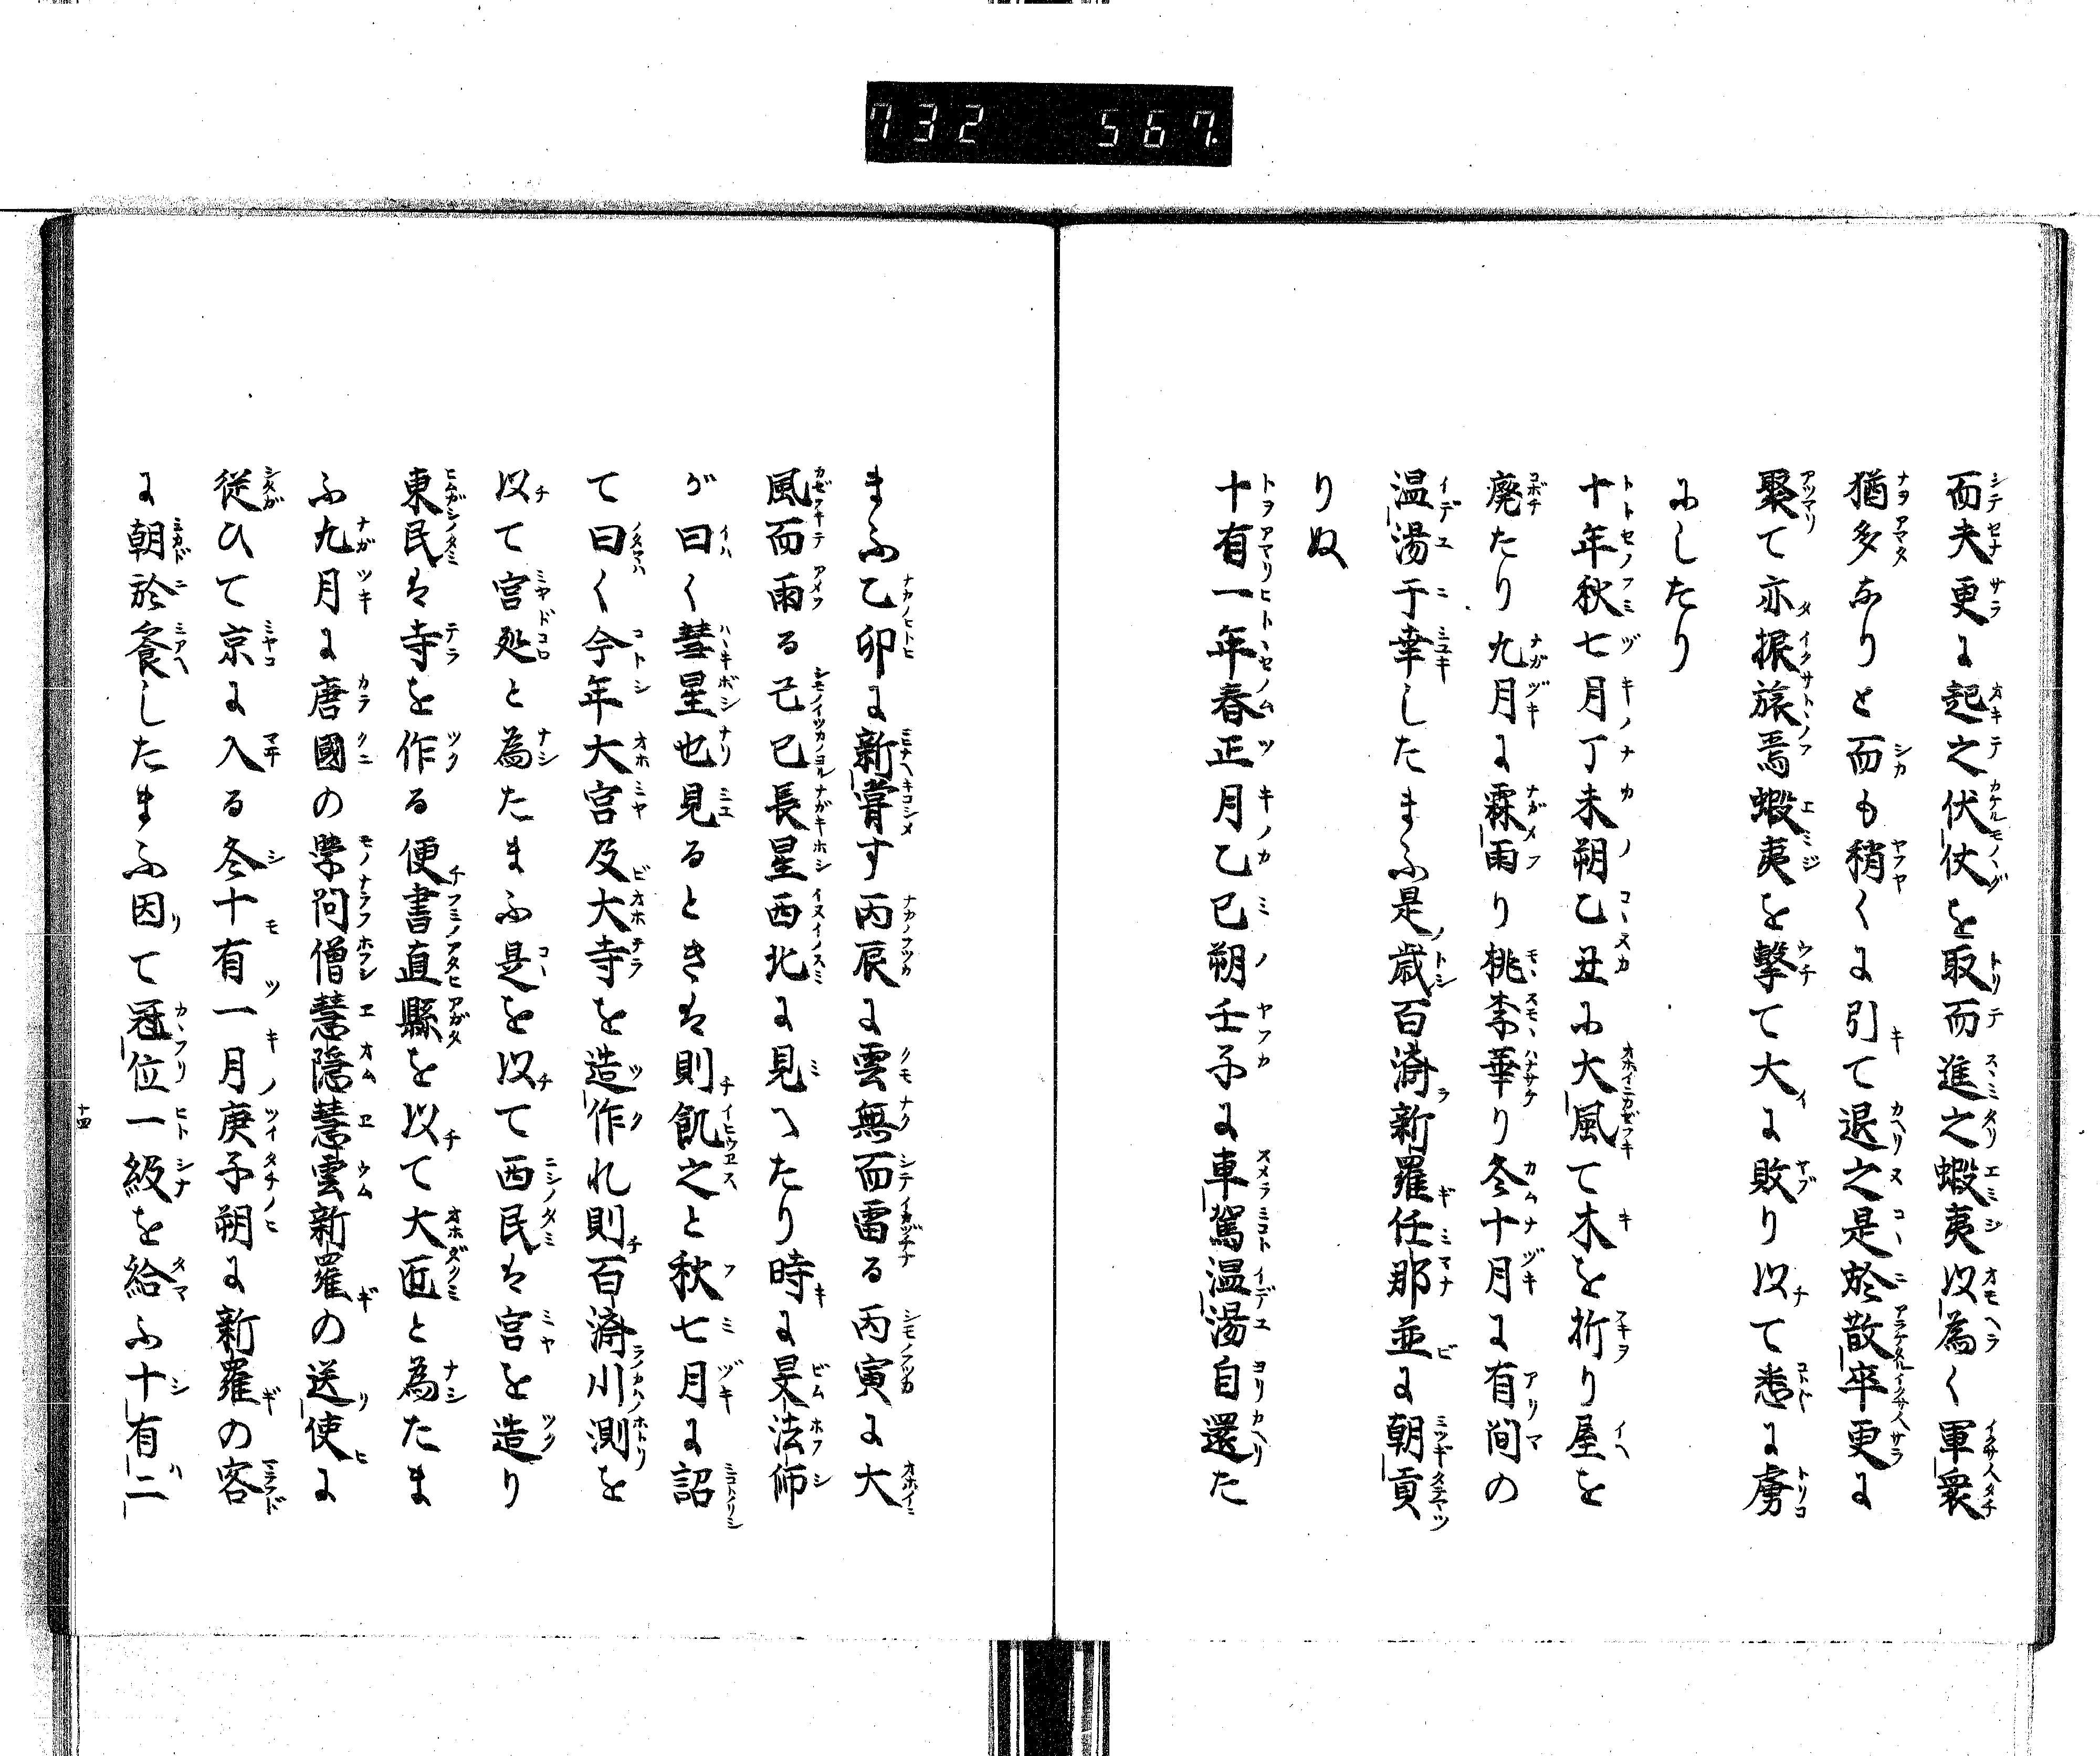 732 567.
而夫更に起之伏仗を取而進之蝦夷以為く軍衆
猶多ありと而も稍くに引て退之是於散卒更に
聚て亦振旅焉蝦夷を撃て大に敗り以て悉に虜
にしたり
十年秋七月丁未朔乙丑に大風て木を折り屋を
廃たり九月に霖雨り桃李華り冬十月に有間の
温湯于幸したまふ是歳百済新羅任那並に朝貢
りぬ
十有一年春正月乙巳朔壬子に車駕温湯自還た
まふ乙卯に新嘗す丙辰に雲無而雷る丙寅に大
風而雨る己巳長星西北に見へたり時に旻法師
が曰く彗星也見るときは則飢之と秋七月に詔
て曰く今年大宮及大寺を造作れ則百済川測を
以て宮処と為たまふ是を以て西民は宮を造り
東民は寺を作る便書直縣を以て大匠と為たま
ふ九月に唐國の學問僧慧隠慧雲新羅の送使に
従ひて京に入る冬十有一月庚子朔に新羅の客
に朝於飡したまふ因て冠位一級を給ふ十有二
十四